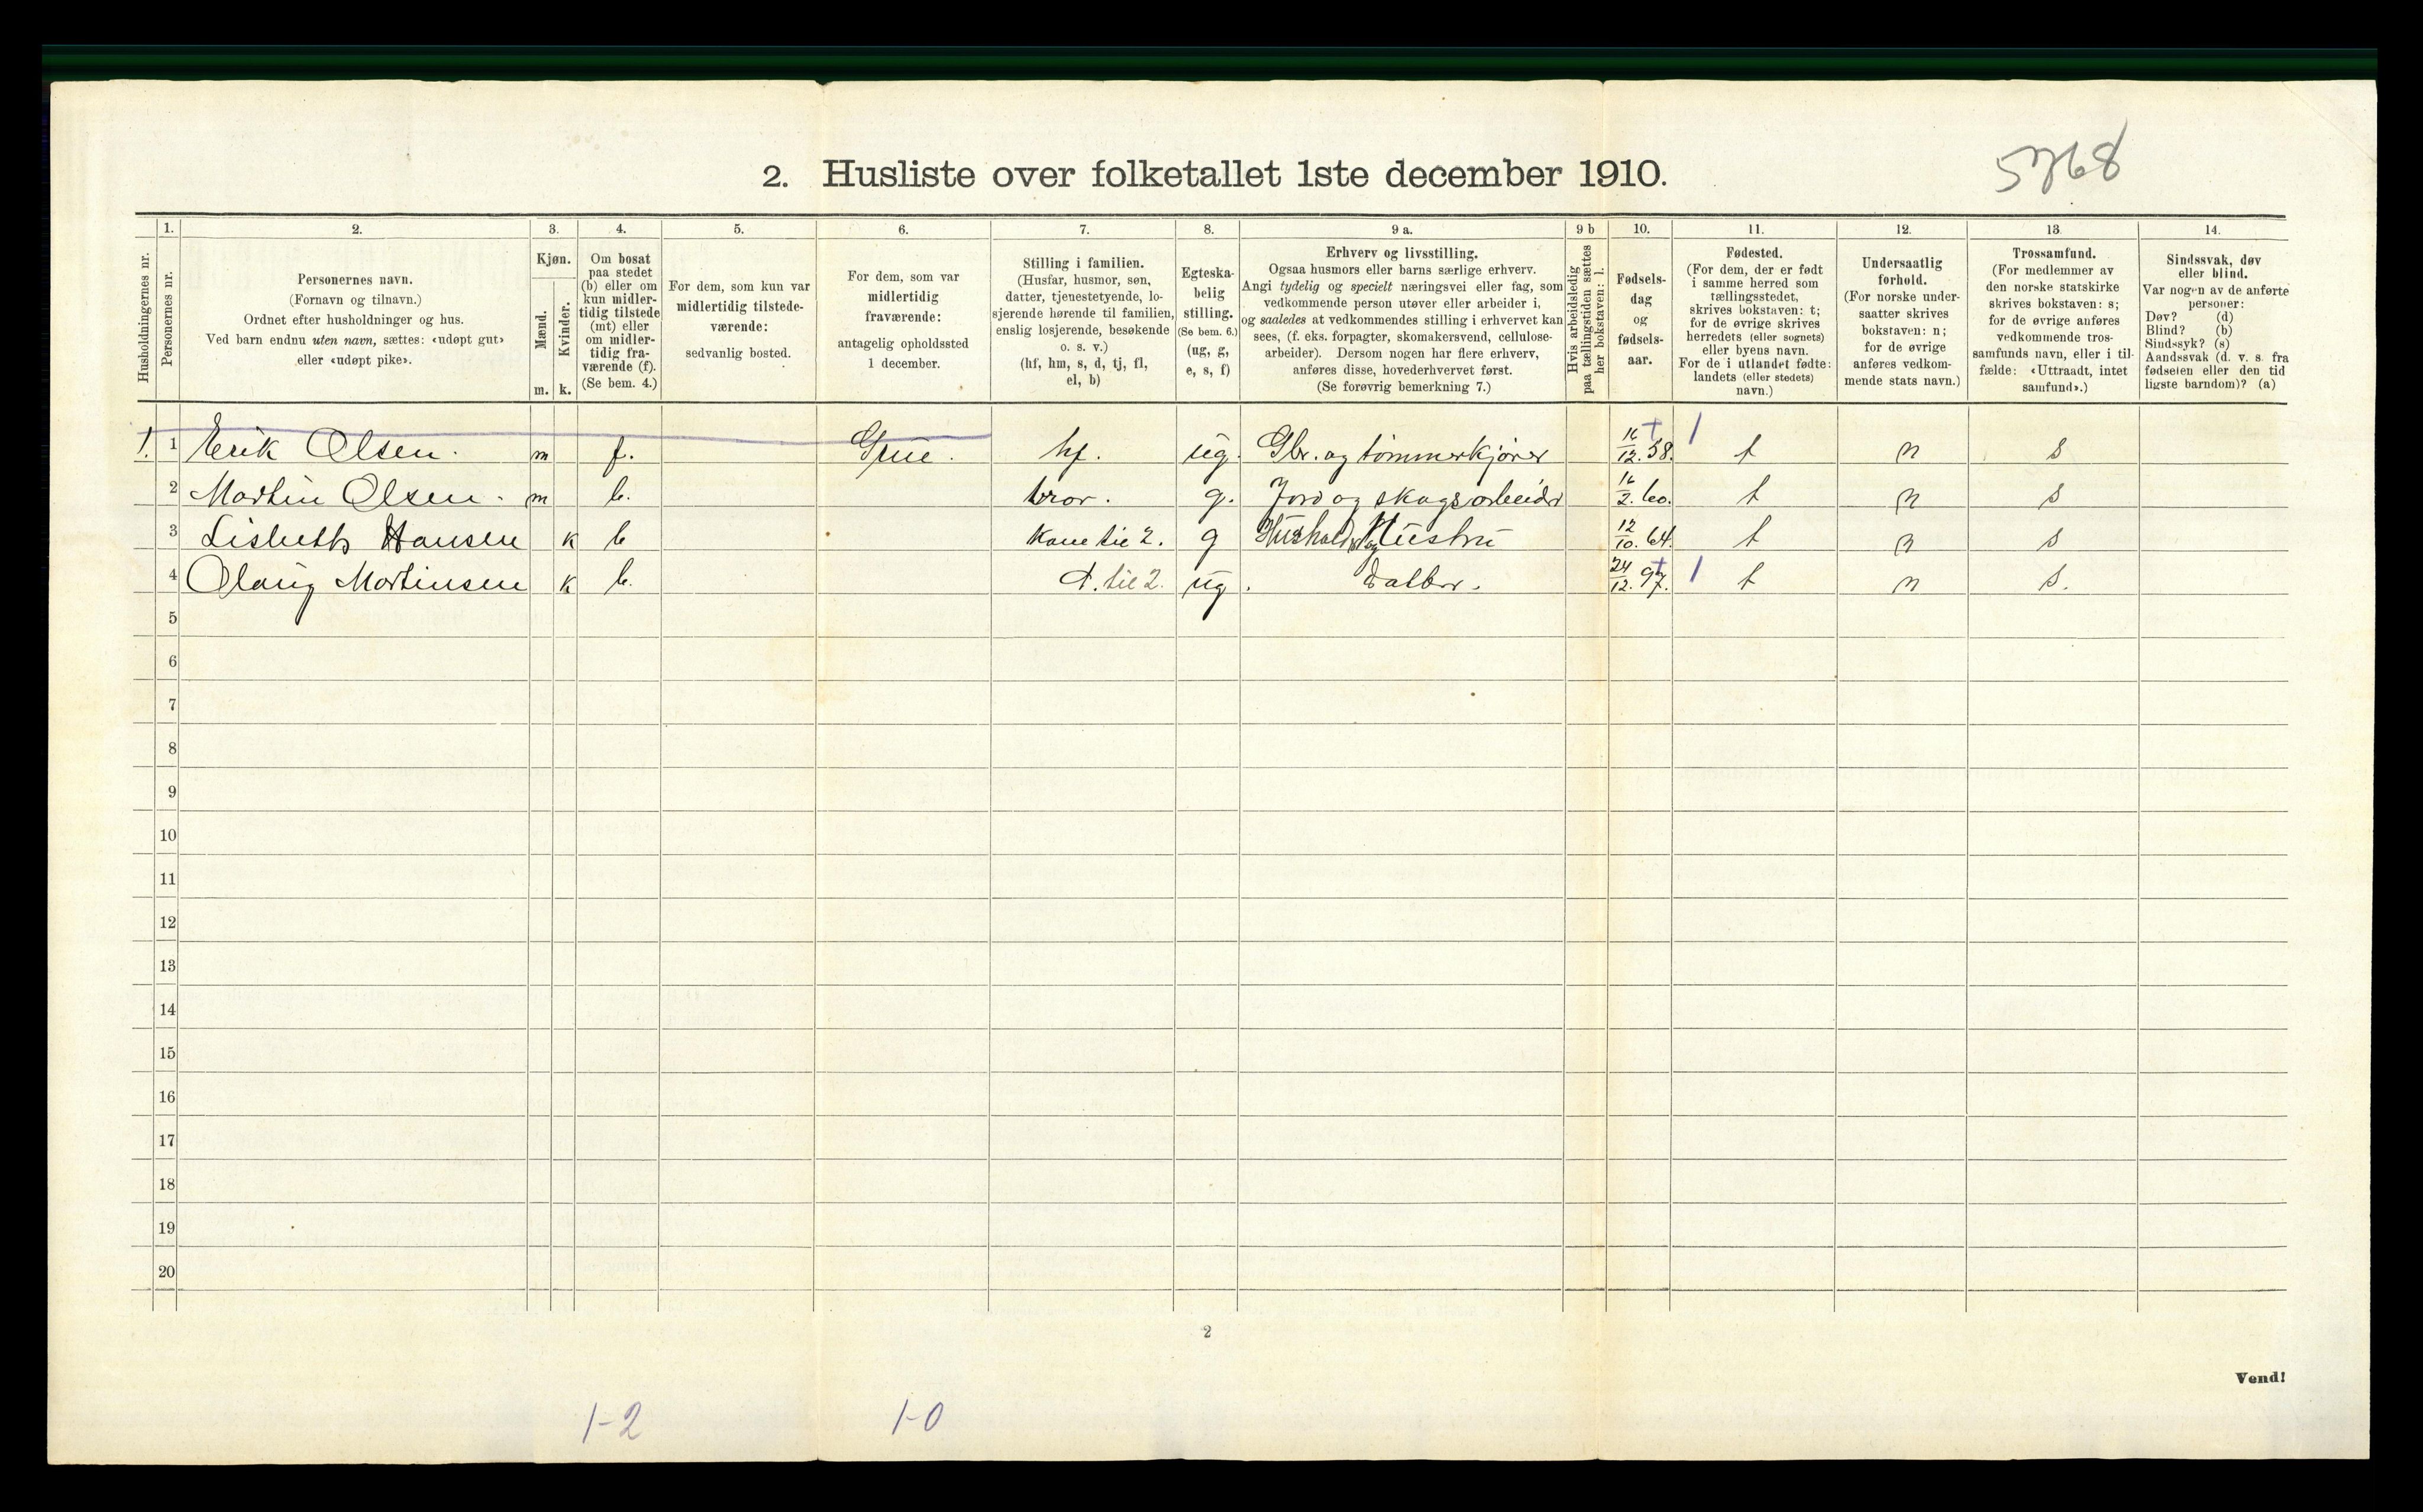 5768
2. Husliste over folketallet 1ste december 1910.
Husholdningernes nr.
1.
Personernes nr.
2.
Personernes navn.
(Fornavn og tilnavn.)
Ordnet efter husholdninger og hus.
Ved barn endnu uten navn, sættes: «udøpt gut»
eller «udøpt pike».
3.
Kjøn.
Mænd.
Kvinder.
m. k.
4.
Om bosat
paa stedet
(b) eller om
kun midler-
tidig tilstede
(mt) eller
om midler-
tidig fra-
værende (f).
(Se bem. 4.)
5.
For dem, som kun var
midlertidig tilstede-
værende:
sedvanlig bosted.
6.
For dem, som var
midlertidig
fraværende:
antagelig opholdssted
1 december.
7.
Stilling i familien.
(Husfar, husmor, søn,
datter, tjenestetyende, lo-
sjerende hørende til familien,
enslig losjerende, besøkende
o. s. v.)
(hf, hm, s, d, tj, fl,
el, b)
8.
Egteska-
belig
stilling.
(Se bem. 6.)
(ug, g,
e, s, f)
9 a.
Erhverv og livsstilling.
Ogsaa husmors eller barns særlige erhverv.
Angi tydelig og specielt næringsvei eller fag, som
vedkommende person utøver eller arbeider i,
og saaledes at vedkommendes stilling i erhvervet kan
sees, (f. eks. forpagter, skomakersvend, cellulose-
arbeider). Dersom nogen har flere erhverv,
anføres disse, hovederhvervet først.
(Se forøvrig bemerkning 7.)
9 b
Hvis arbeidsledig
paa tællingstiden sættes
her bokstaven: l.
10.
Fødsels-
dag
og
fødsels-
aar.
11.
Fødested.
(For dem, der er født
i samme herred som
tællingsstedet,
skrives bokstaven: t;
for de øvrige skrives
herredets (eller sognets)
eller byens navn.
For de i utlandet fødte:
landets (eller stedets)
navn.)
12.
Undersaatlig
forhold.
(For norske under-
saatter skrives
bokstaven: n;
for de øvrige
anføres vedkom-
mende stats navn.)
13.
Trossamfund.
(For medlemmer av
den norske statskirke
skrives bokstaven: s;
for de øvrige anføres
vedkommende tros-
samfunds navn, eller i til-
fælde: «Uttraadt, intet
samfund».)
14.
Sindssvak, døv
eller blind.
Var nogen av de anførte
personer:
Døv? (d)
Blind? (b)
Sindssyk? (s)
Aandssvak (d. v. s. fra
fødselen eller den tid
ligste barndom)? (a)
1. 1 Erik Olsen. m f. Grue. hf. ug. Gbr. og tømmerkjører 16/12. 58. t n s
2 Martin Olsen. m b. bror. g. Jord og skogsarbeider 16/2. 60. t n s
3 Lisbeth Hansen k b kone til 2. g Hustru 12/10. 64. t n s
4 Olaug Martinsen k b. d. til 2. ug. datter. 24/12. 97. t n s.
5
6
7
8
9
10
11
12
13
14
15
16
17
18
19
20
2
Vend!
1-2 1-0